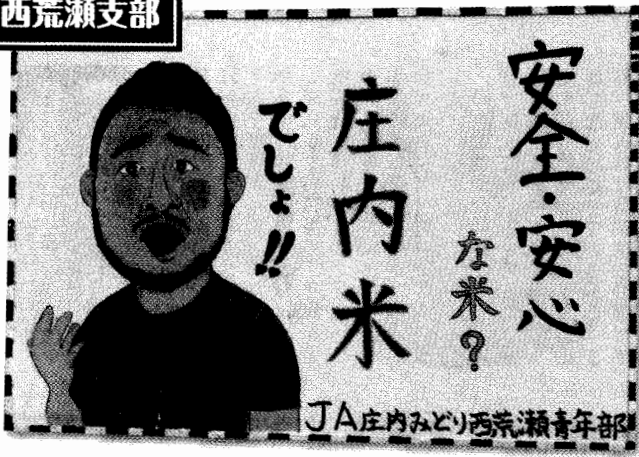 西荒瀬支部
安全・安心
な米?
庄内米
でしょ!!
JA庄内みどり西荒瀬青年部